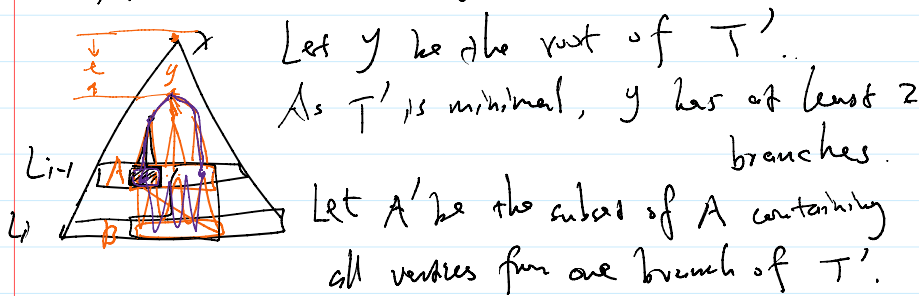 x
Let y be the root of T'.
l
y
As T' is minimal, y has at least 2
branches.
L_{i-1}
A
Let A' be the subset of A containing
L_i
B
all vertices from one branch of T'.